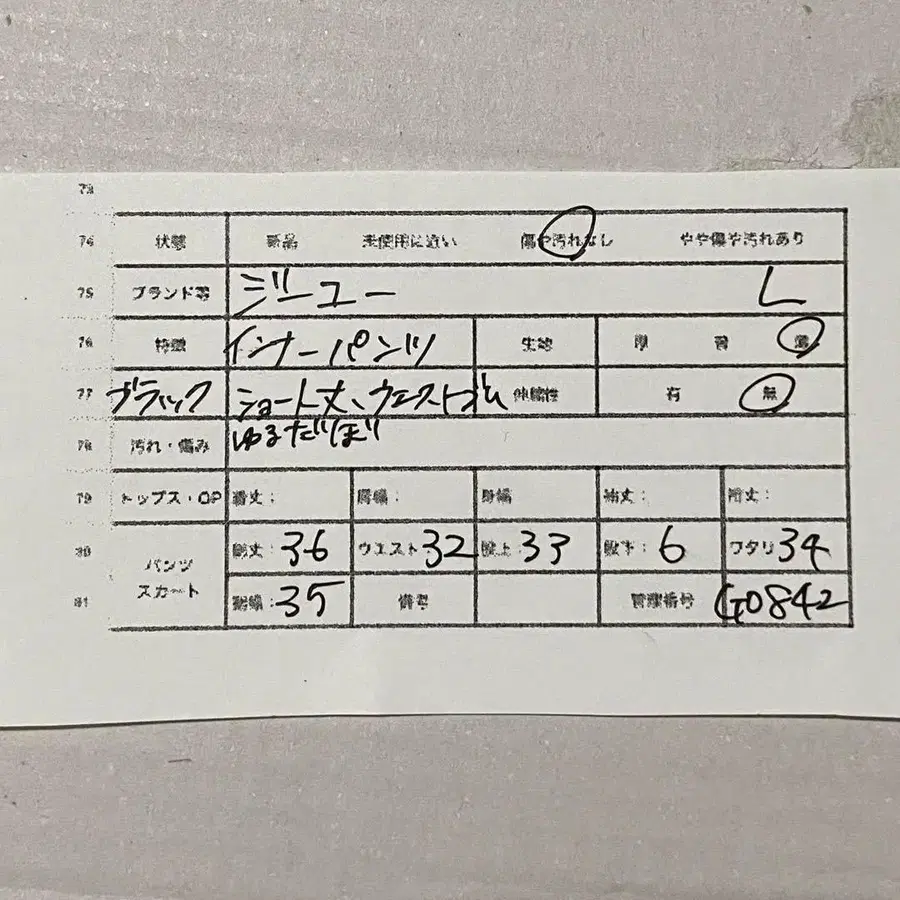 73
74 状態 新品 未使用に近い 傷や汚れなし やや傷や汚れあり
75 ブランド等 ジーユー L
76 特徴 インナーパンツ 生地 厚 普 薄
77 ブラック ショート丈、ウエストゴム 伸縮性 有 無
78 汚れ・傷み ゆるだぼ
79 トップス・OP 着丈: 肩幅: 身幅 袖丈: 裄丈:
80 パンツ 総丈: 36 ウエスト 32 股上: 33 股下: 6 ワタリ 34
81 スカート 裾幅: 35 備考 管理番号 G0842